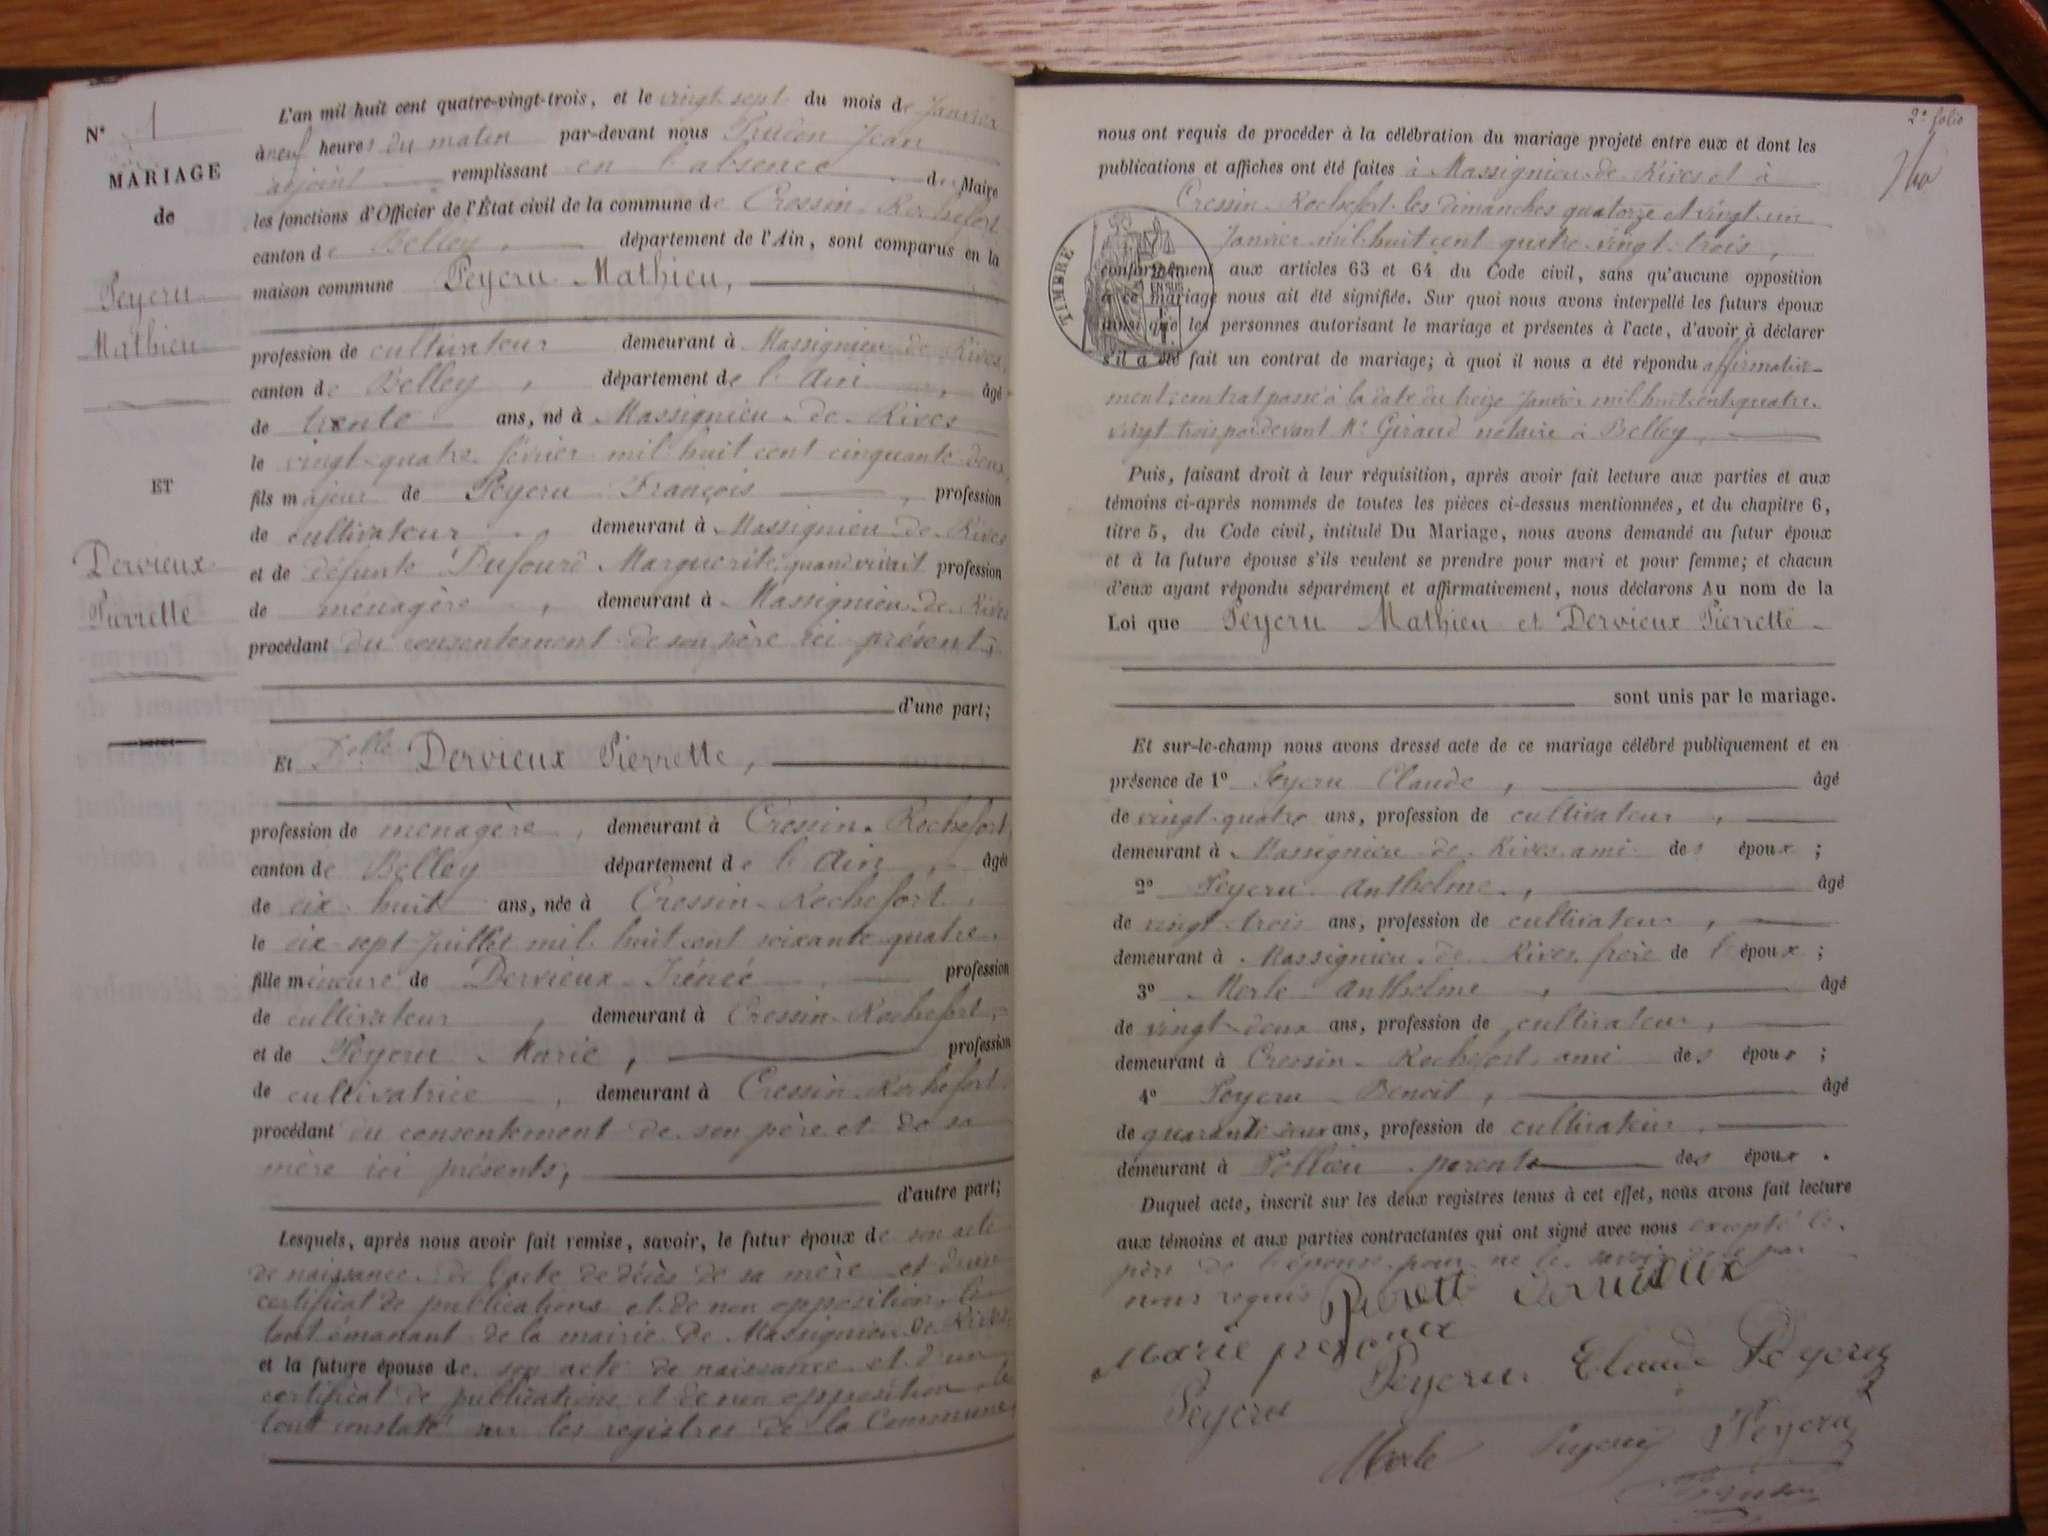 N° 1
MARIAGE
de
Peyeru
Mathieu
ET
Dervieux
Pierrette
L'an mil huit cent quatre-vingt-trois, et le vingt sept du mois de Janvier
à neuf heures du matin par-devant nous Jean
adjoint remplissant en l'absence du Maire
les fonctions d'Officier de l'État civil de la commune de Cressin-Rochefort
canton de Belley, département de l'Ain, sont comparus en la
maison commune Peyeru Mathieu,
profession de cultivateur demeurant à Massignieu-de-Rives,
canton de Belley, département de l'Ain, âgé
de trente ans, né à Massignieu-de-Rives
le vingt-quatre février mil huit cent cinquante-deux,
fils majeur de Peyeru François, profession
de cultivateur, demeurant à Massignieu-de-Rives
et de défunte Dufour Marguerite, quand vivait profession
de ménagère, demeurant à Massignieu-de-Rives
procédant du consentement de son père ici présent,
d'une part;
Et Delle Dervieux Pierrette,
profession de ménagère, demeurant à Cressin-Rochefort,
canton de Belley département de l'Ain, âgée
de dix-huit ans, née à Cressin-Rochefort,
le dix-sept Juillet mil huit cent soixante-quatre,
fille mineure de Dervieux Irénée, profession
de cultivateur, demeurant à Cressin-Rochefort,
et de Peyeru Marie, profession
de cultivatrice, demeurant à Cressin-Rochefort
procédant du consentement de son père et de sa
mère ici présents,
d'autre part;
Lesquels, après nous avoir fait remise, savoir, le futur époux de son acte
de naissance, de l'acte de décès de sa mère et d'un
certificat de publications et de non opposition, le
tout émanant de la mairie de Massignieu-de-Rives,
et la future épouse de son acte de naissance et d'un
certificat de publications et de non opposition, le
tout constaté sur les registres de la Commune,
2e folio
nous ont requis de procéder à la célébration du mariage projeté entre eux et dont les
publications et affiches ont été faites à Massignieu-de-Rives et à
Cressin-Rochefort les dimanches quatorze et vingt-un
Janvier mil huit cent quatre-vingt-trois,
TIMBRE
conformément aux articles 63 et 64 du Code civil, sans qu'aucune opposition
à ce mariage nous ait été signifiée. Sur quoi nous avons interpellé les futurs époux
ainsi que les personnes autorisant le mariage et présentes à l'acte, d'avoir à déclarer
s'il a été fait un contrat de mariage; à quoi il nous a été répondu affirmative-
ment; contrat passé à la date du treize Janvier mil huit cent quatre-
vingt trois pardevant Me Giraud notaire à Belley,
Puis, faisant droit à leur réquisition, après avoir fait lecture aux parties et aux
témoins ci-après nommés de toutes les pièces ci-dessus mentionnées, et du chapitre 6,
titre 5, du Code civil, intitulé Du Mariage, nous avons demandé au futur époux
et à la future épouse s'ils veulent se prendre pour mari et pour femme; et chacun
d'eux ayant répondu séparément et affirmativement, nous déclarons Au nom de la
Loi que Peyeru Mathieu et Dervieux Pierrette
sont unis par le mariage.
Et sur-le-champ nous avons dressé acte de ce mariage célébré publiquement et en
présence de 1° Peyeru Claude, âgé
de vingt-quatre ans, profession de cultivateur,
demeurant à Massignieu-de-Rives ami des époux;
2° Peyeru Anthelme, âgé
de vingt-trois ans, profession de cultivateur,
demeurant à Massignieu-de-Rives frère de l'époux;
3° Merle Anthelme, âgé
de vingt-deux ans, profession de cultivateur,
demeurant à Cressin-Rochefort ami des époux;
4° Peyeru Benoit, âgé
de quarante-deux ans, profession de cultivateur,
demeurant à Pollieu parent des époux.
Duquel acte, inscrit sur les deux registres tenus à cet effet, nous avons fait lecture
aux témoins et aux parties contractantes qui ont signé avec nous excepté le
père de l'épouse pour ne le savoir de ce par
nous requis Pierrette Dervieux
Marie
Peyeru Peyeru Claude Peyeru
Merle Peyeru Peyeru